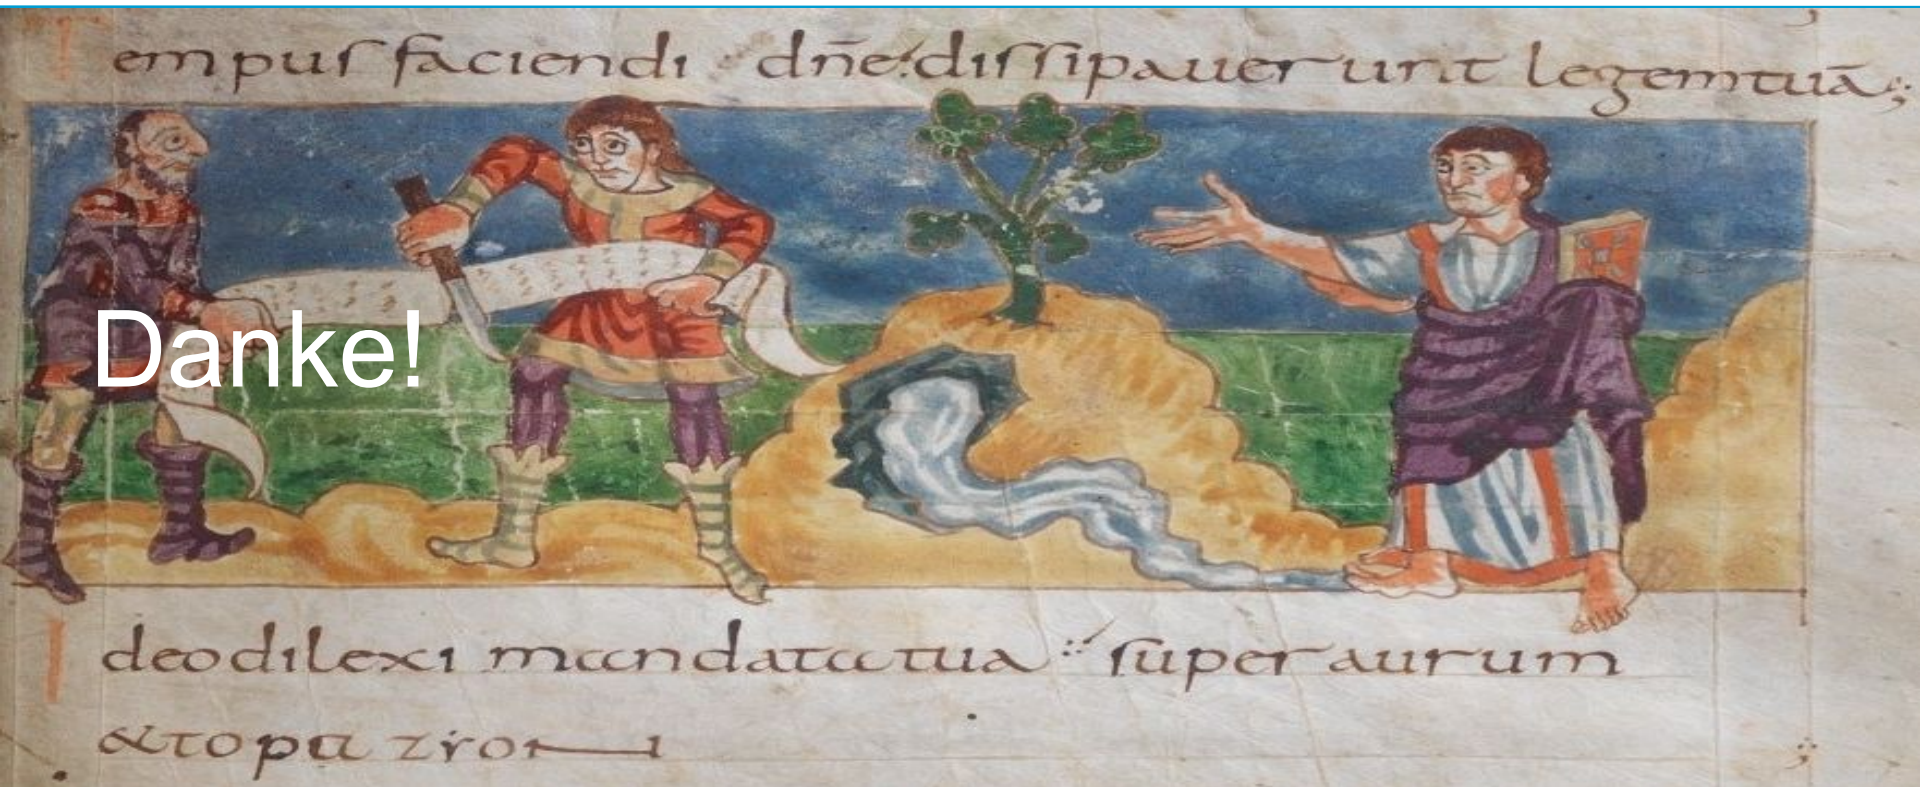 Tempus faciendi dñe: dissipauerunt legem tuā;
Danke!
Ideo dilexi mandata tua super aurum
& topazyon